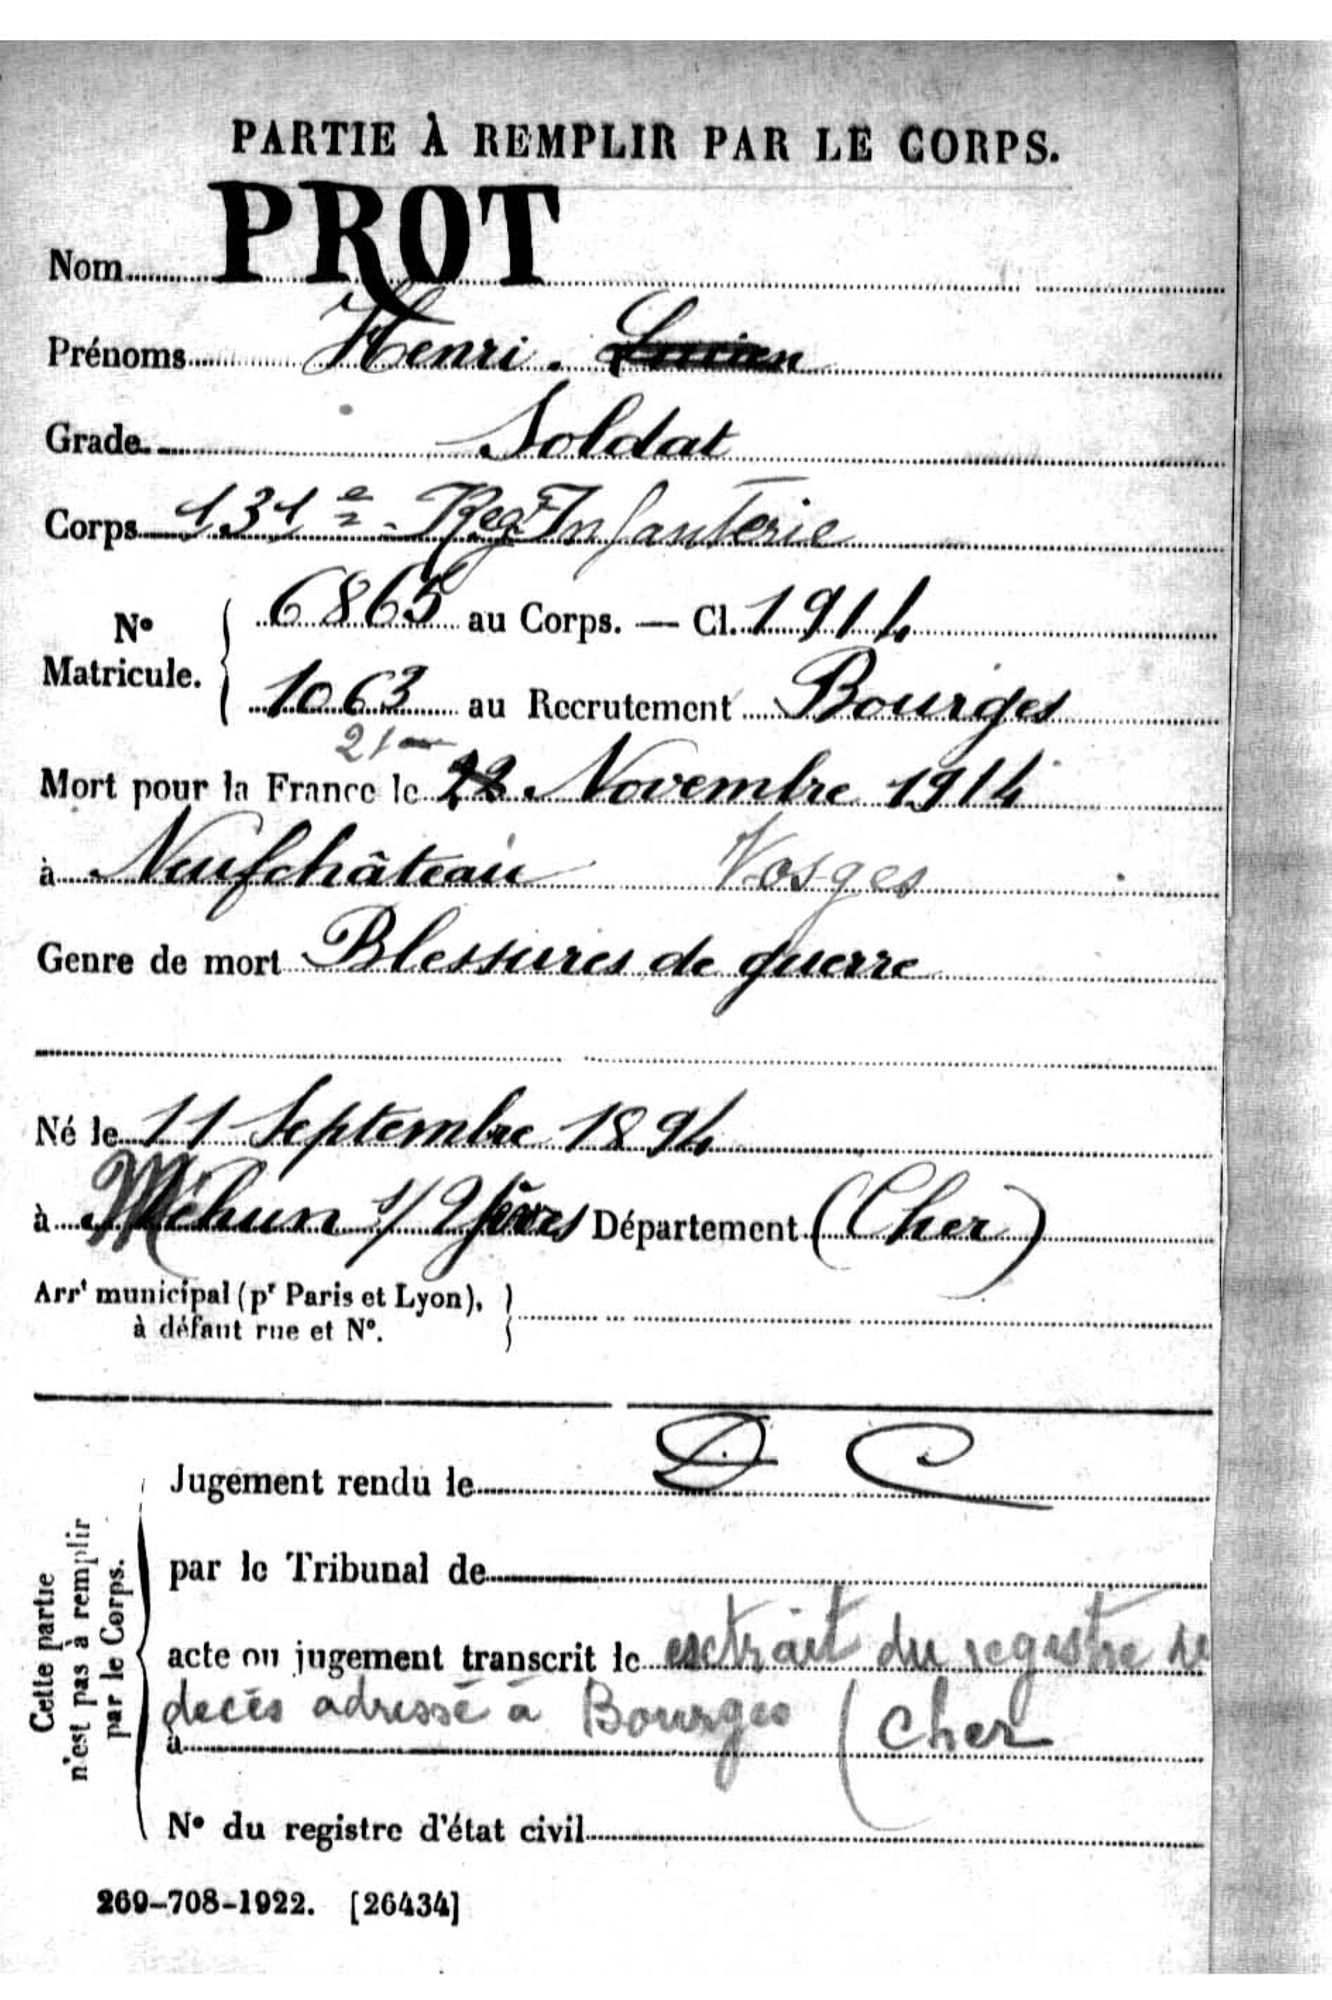 PARTIE À REMPLIR PAR LE CORPS.
Nom PROT
Prénoms Henri. Lucien
Grade Soldat
Corps 131e Regt Infanterie
No Matricule. 6865 au Corps. — Cl. 1914
1063 au Recrutement Bourges
21
Mort pour la France le 22 Novembre 1914
à Neufchâteau Vosges
Genre de mort Blessures de guerre
Né le 11 Septembre 1894
à Méhun s/ Yèvres Département (Cher)
Arrt municipal (pr Paris et Lyon),
à défaut rue et No.
Cette partie
n'est pas à remplir
par le Corps.
Jugement rendu le D C
par le Tribunal de
acte ou jugement transcrit le extrait du registre de
decès adressé à Bourges (Cher
à
No du registre d'état civil
269-708-1922. [26434]